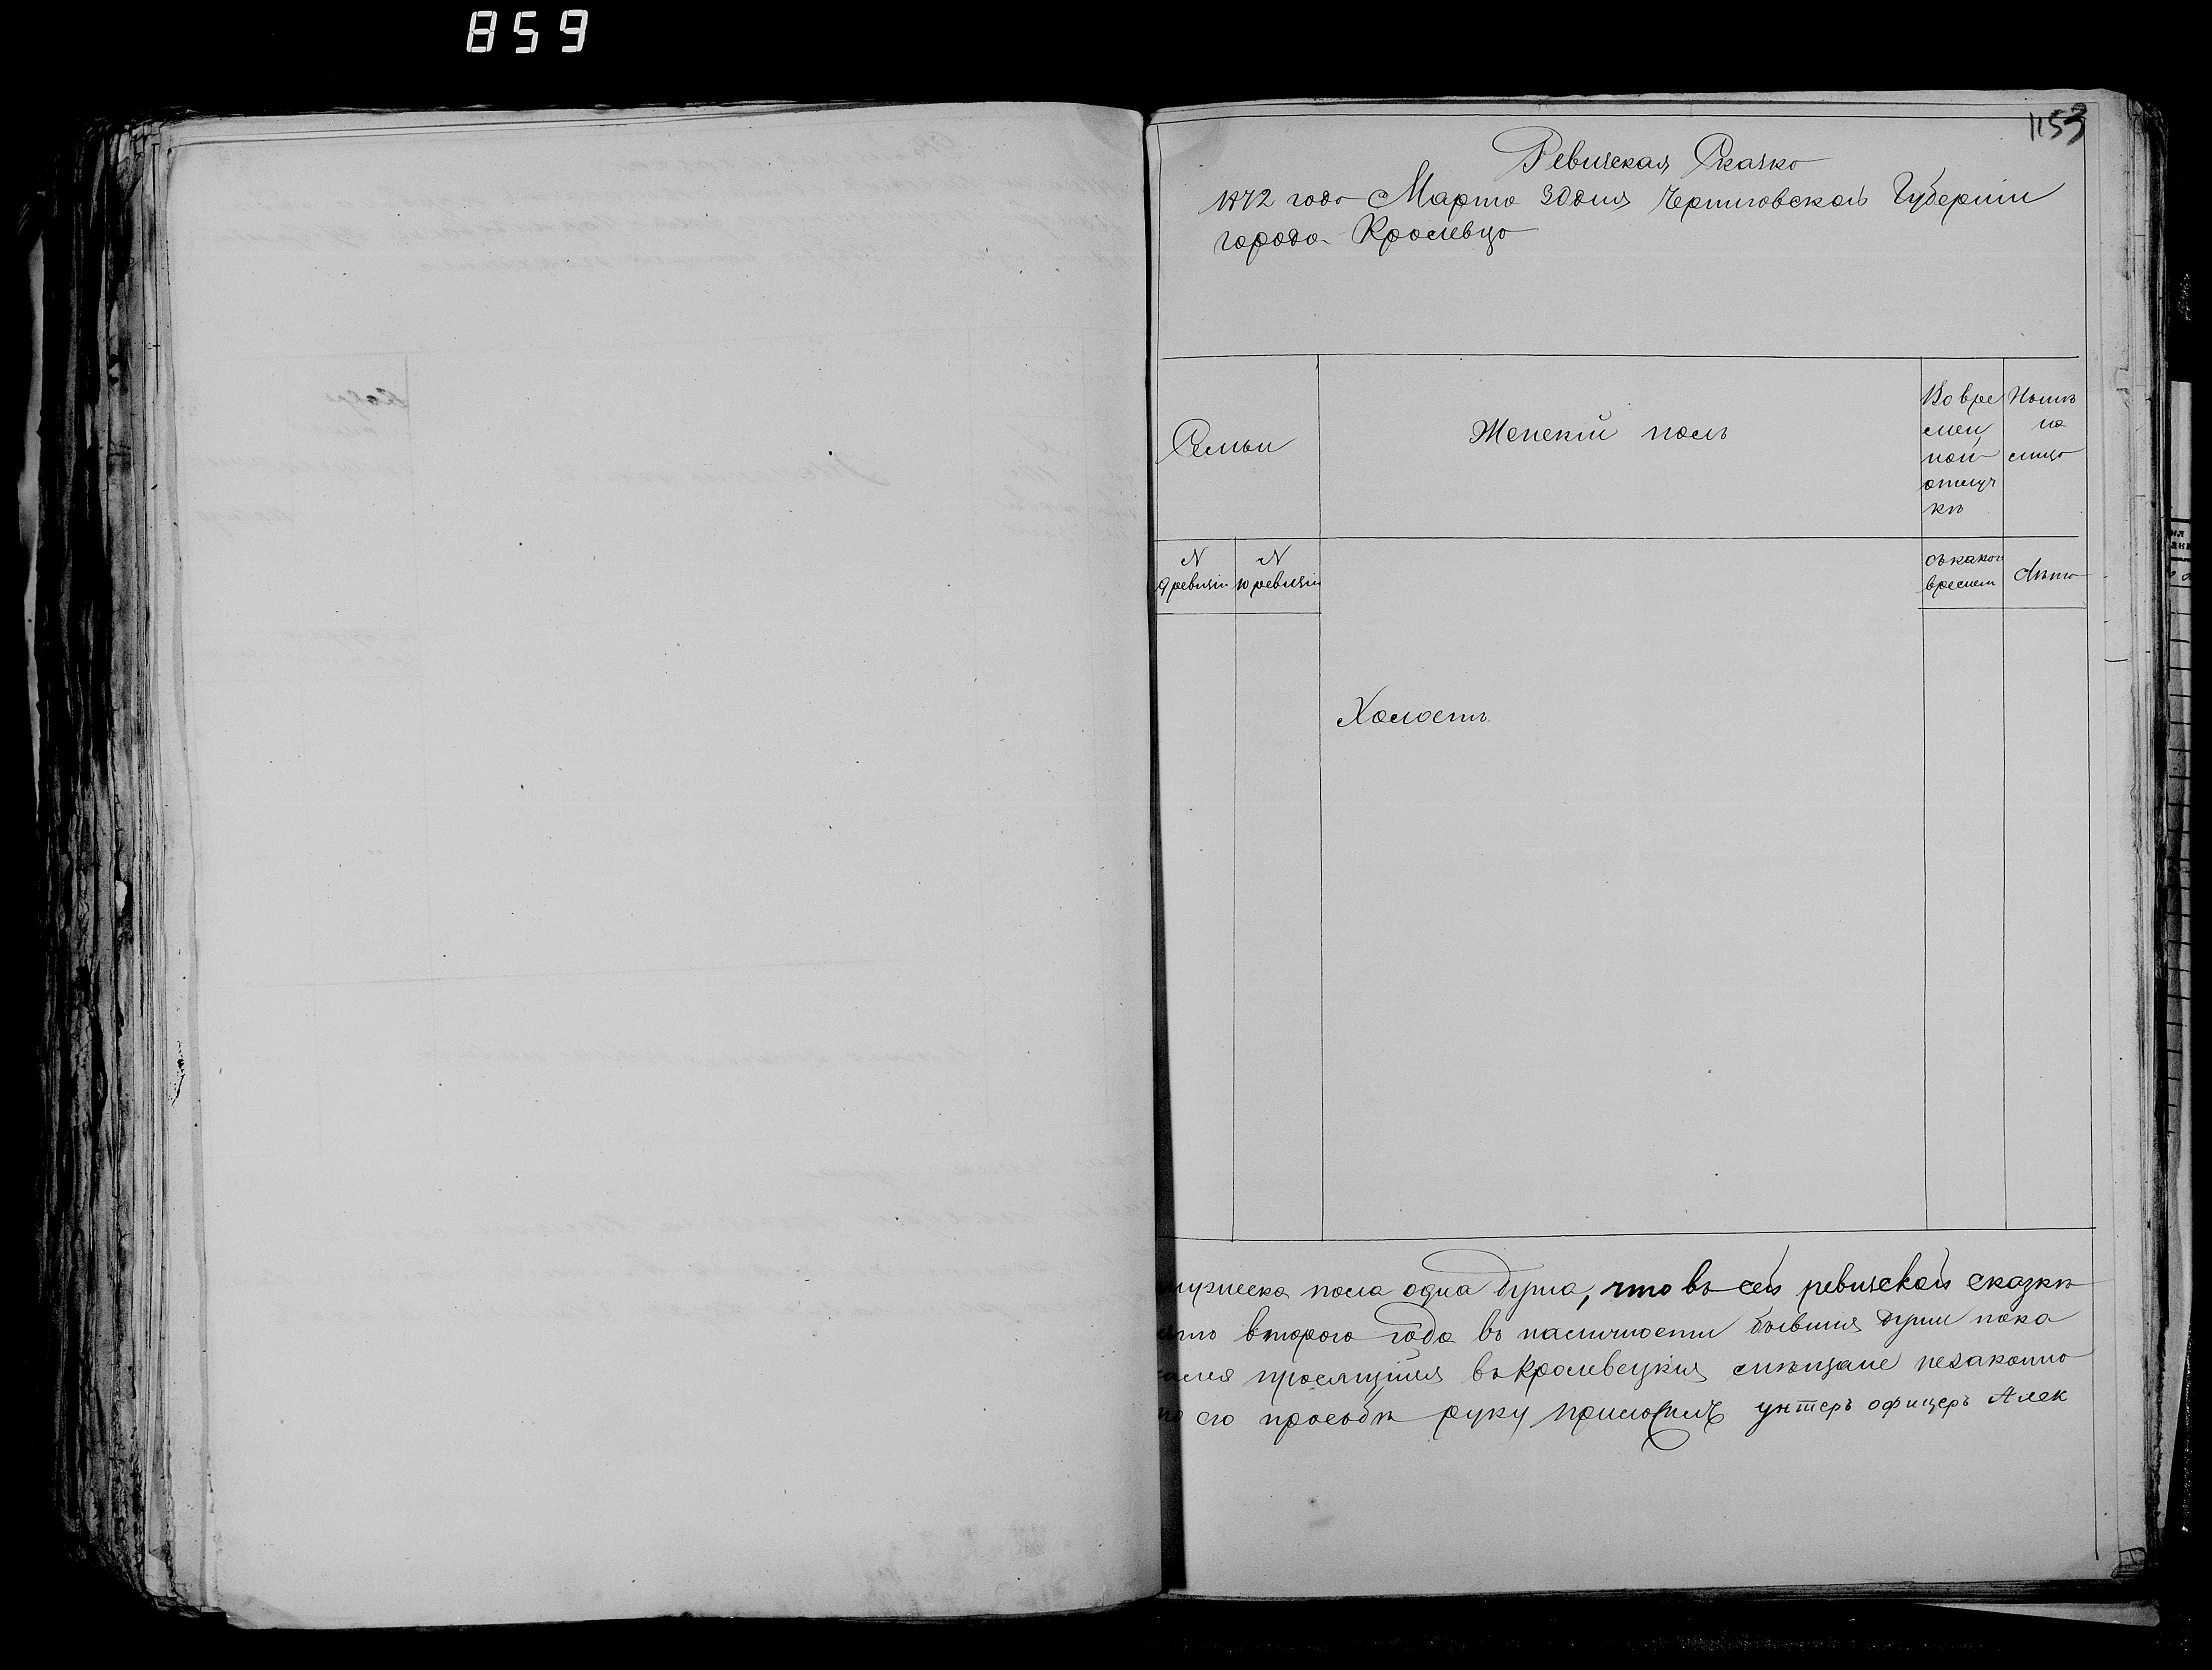 859
1153
Ревизская Сказка
1872 года Марта 30 дня Черниговской Губерніи
города Кролевца
Семьи
Женскій полъ
Во вре
мен
ной
отлуч
кѣ
Нынѣ
на
лицо
N
9 ревизіи
N
10 ревизіи
съ каког
времен
Лѣта
Холостъ
мужеска пола одна душа, что въ сей ревизской сказкѣ
втораго года въ наличности бывшія души пока
просящійся въ Кролевецкія мѣщане незаконно
его прозьбѣ руку приложилъ унтеръ офицеръ Алек